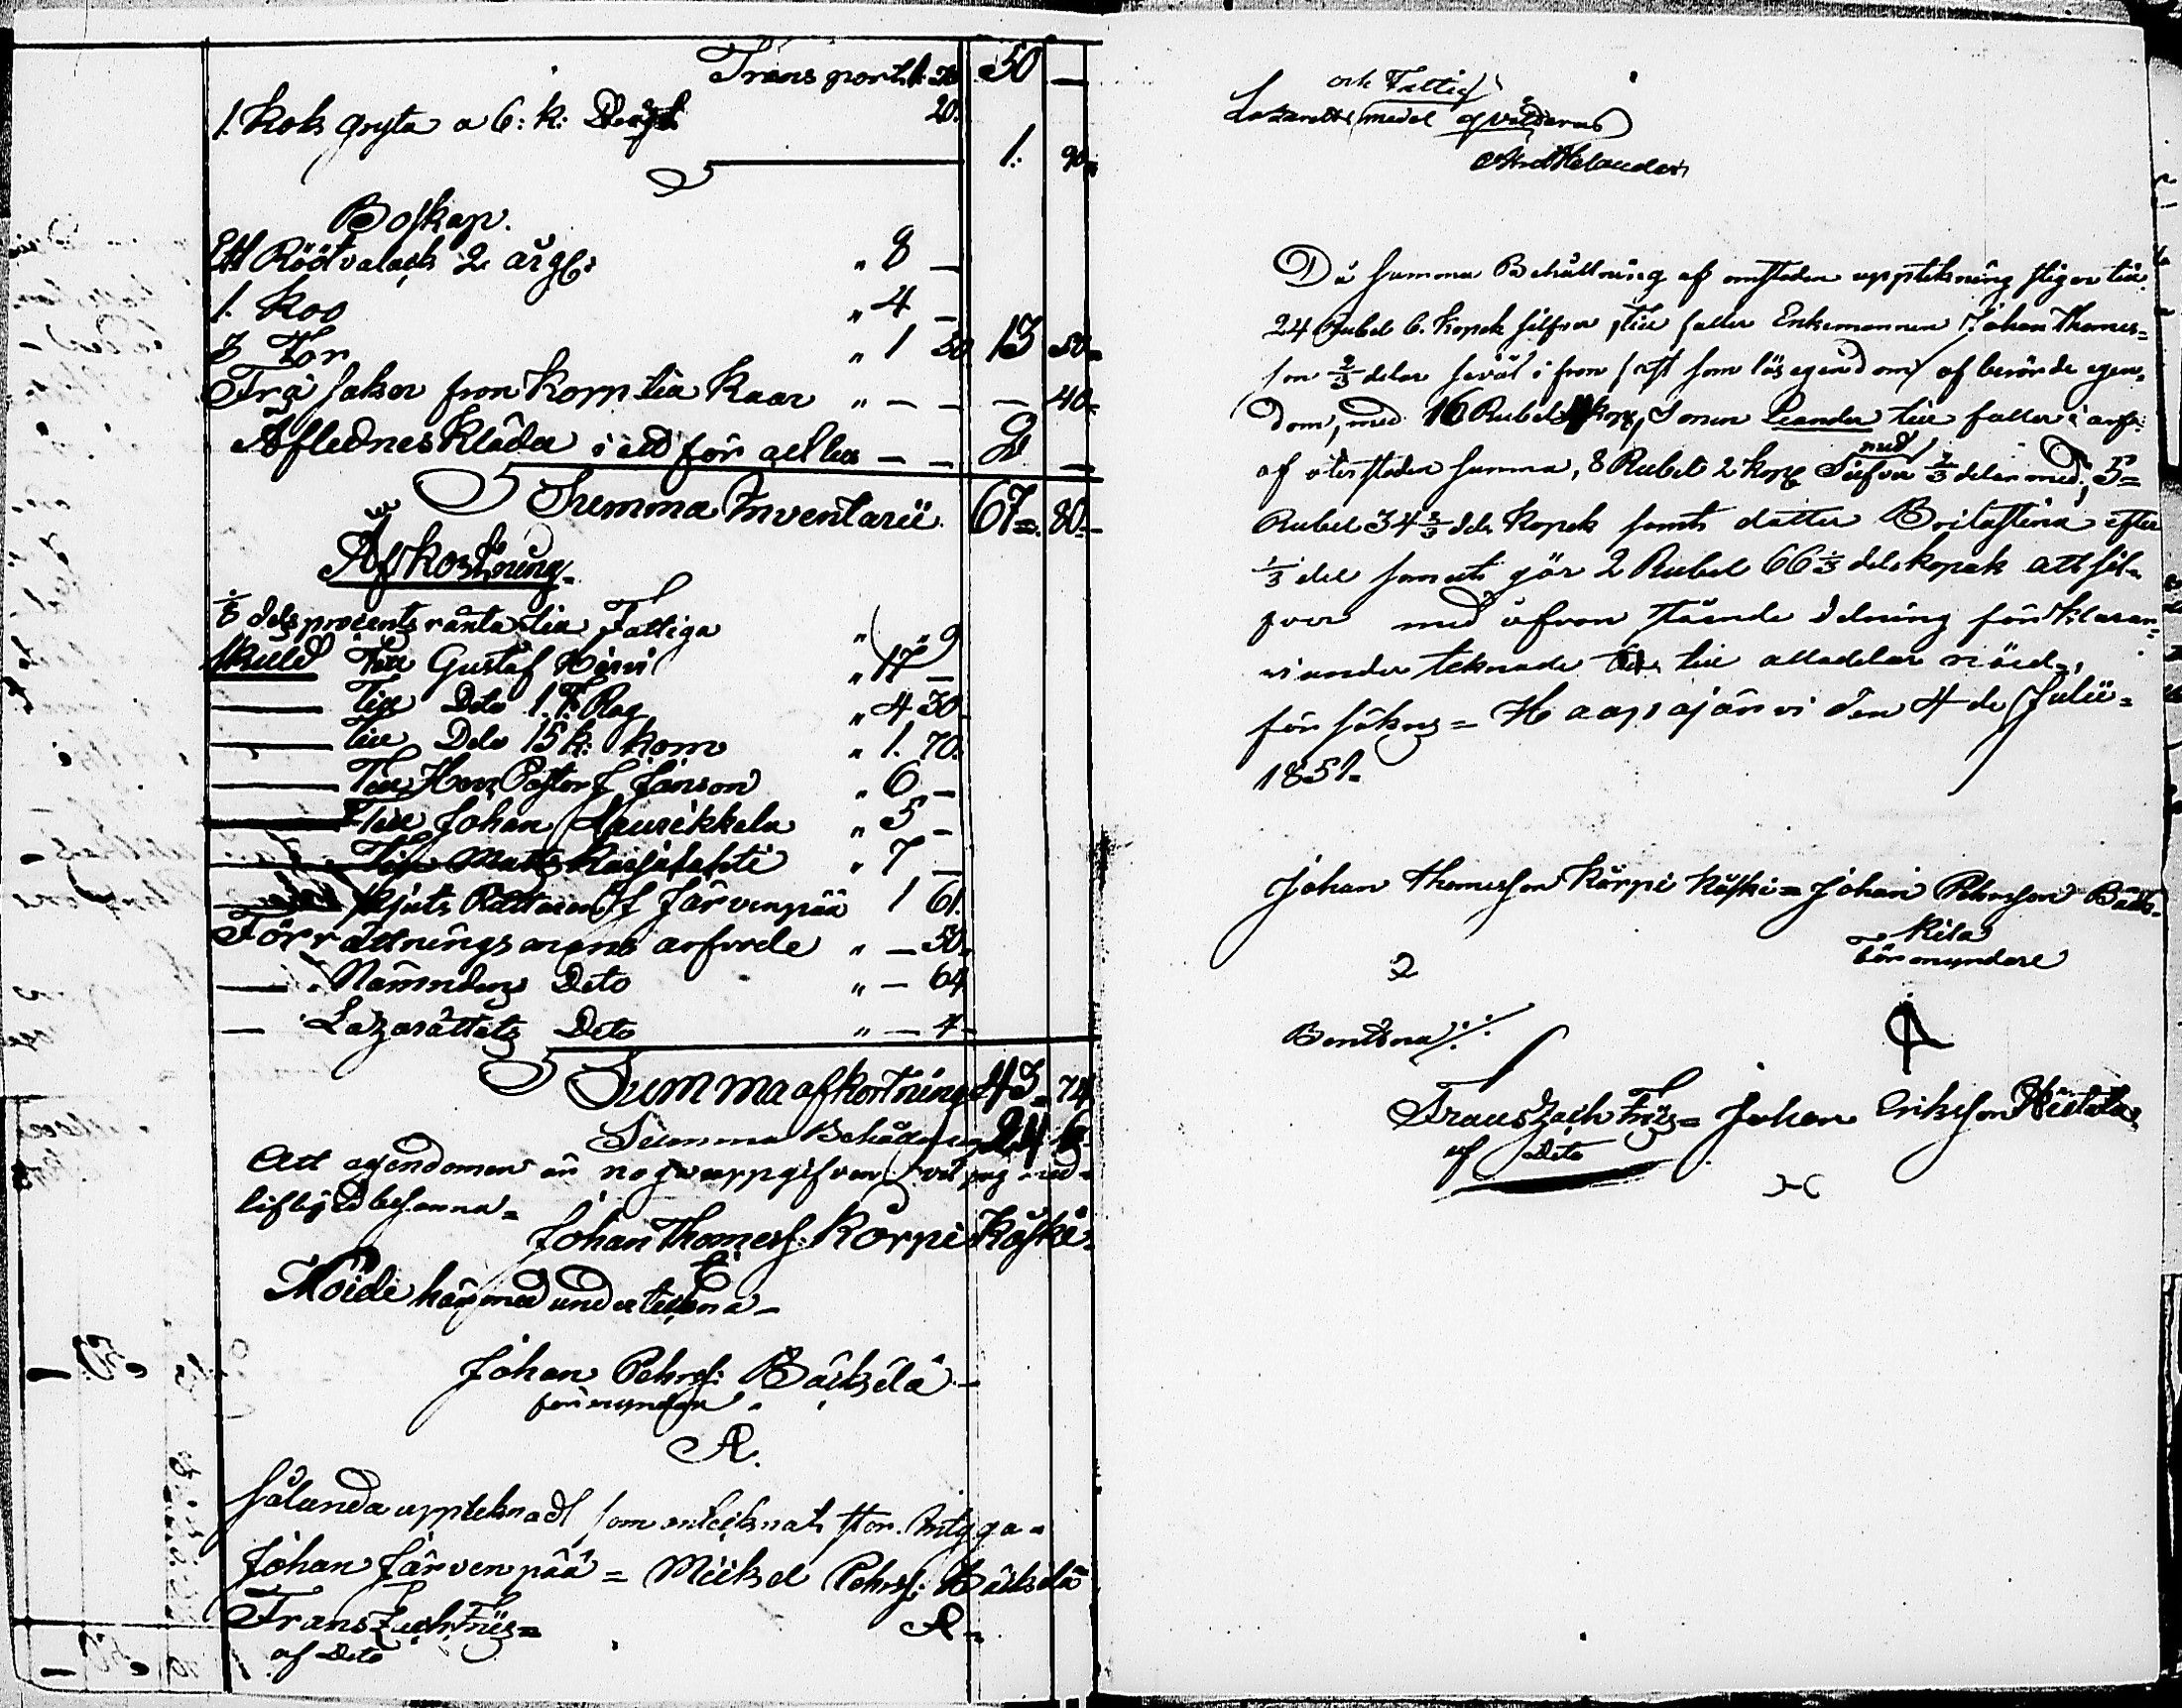 Transport 50 —
1. Koks gryta a 6: k: 20. 1: 90
Boskap.
Ett Rööt valack 2 årg: " 8 —
1. Koo " 4 —
3 Får " 1 50 13 50
Trä saker från Korp till Kaar " — — — 40
Aflednes Kläder i ett för allt — — 2 —
Summa Inventarii 67 80
Afkortning
1/8 dels procents ränta till Fattiga " " 9
Skuld Till Gustaf Hirvi " 17 —
— Till Dito 1 T. Rog " 4 30
— Till Dito 15 k: korn " 1. 70
— Till Herr Pastor J Janson " 6 —
— Till Johan Maurikkala " 5 —
— Till Matts " 7 —
— Skjuts Rättaren J Järvenpää 1 61.
Förrättnings mans arfvode " — 50
— Nämndens Dito " — 64
— Lazarättets Dito " — 4
Summa afkortning 43 74
Summa Behållning 24 6
Att egendomen är noga uppgifven vil jag med
lifligEd besanna =
Johan Thomess: Korpi Koski
Nöide härmed underteckna —
Johan Pehrss: Bäckilä —
förmyndare
Sålunda upteknadt som anteknat står. Intyga =
Johan Järvenpää = Mickel Pehrss: Bäckilä
Frans Zach: Friis =
af Dito
och Fattig
Lazaretts medel qvitteras
And Helander
Då summa Behållning af omstående upptekning stiger till
24 Rubel 6. kopek silfver, Till faller Enkemannen Johan Thomes=
son 2/3 delar såväl i fron fast som lös egendom af berörde egen=
dom, med 16 Rubel 4 kop, Sonen Leander till faller i arf
af återstoden summa, 8 Rubel 2 kop Silfver 2/3 delar med, 5=
Rubel 34 2/3 dels Kopek samt datter Britastina efter
1/3 del som ut gör 2 Rubel 66 1/3 dels kopek alt sil=
fver med åfvan stående delning förklaran=
vi under teknade till alladelar nöid,
försäkras = Haapajärvi den 4 de Julii =
1851.
Johan Thomesson Korpi Koski = Johan Pehrsson Bäck=
kila
förmyndare
Bevittna ./.
Frans Zach Friis = Johan Eriksson Hietala
af Dito